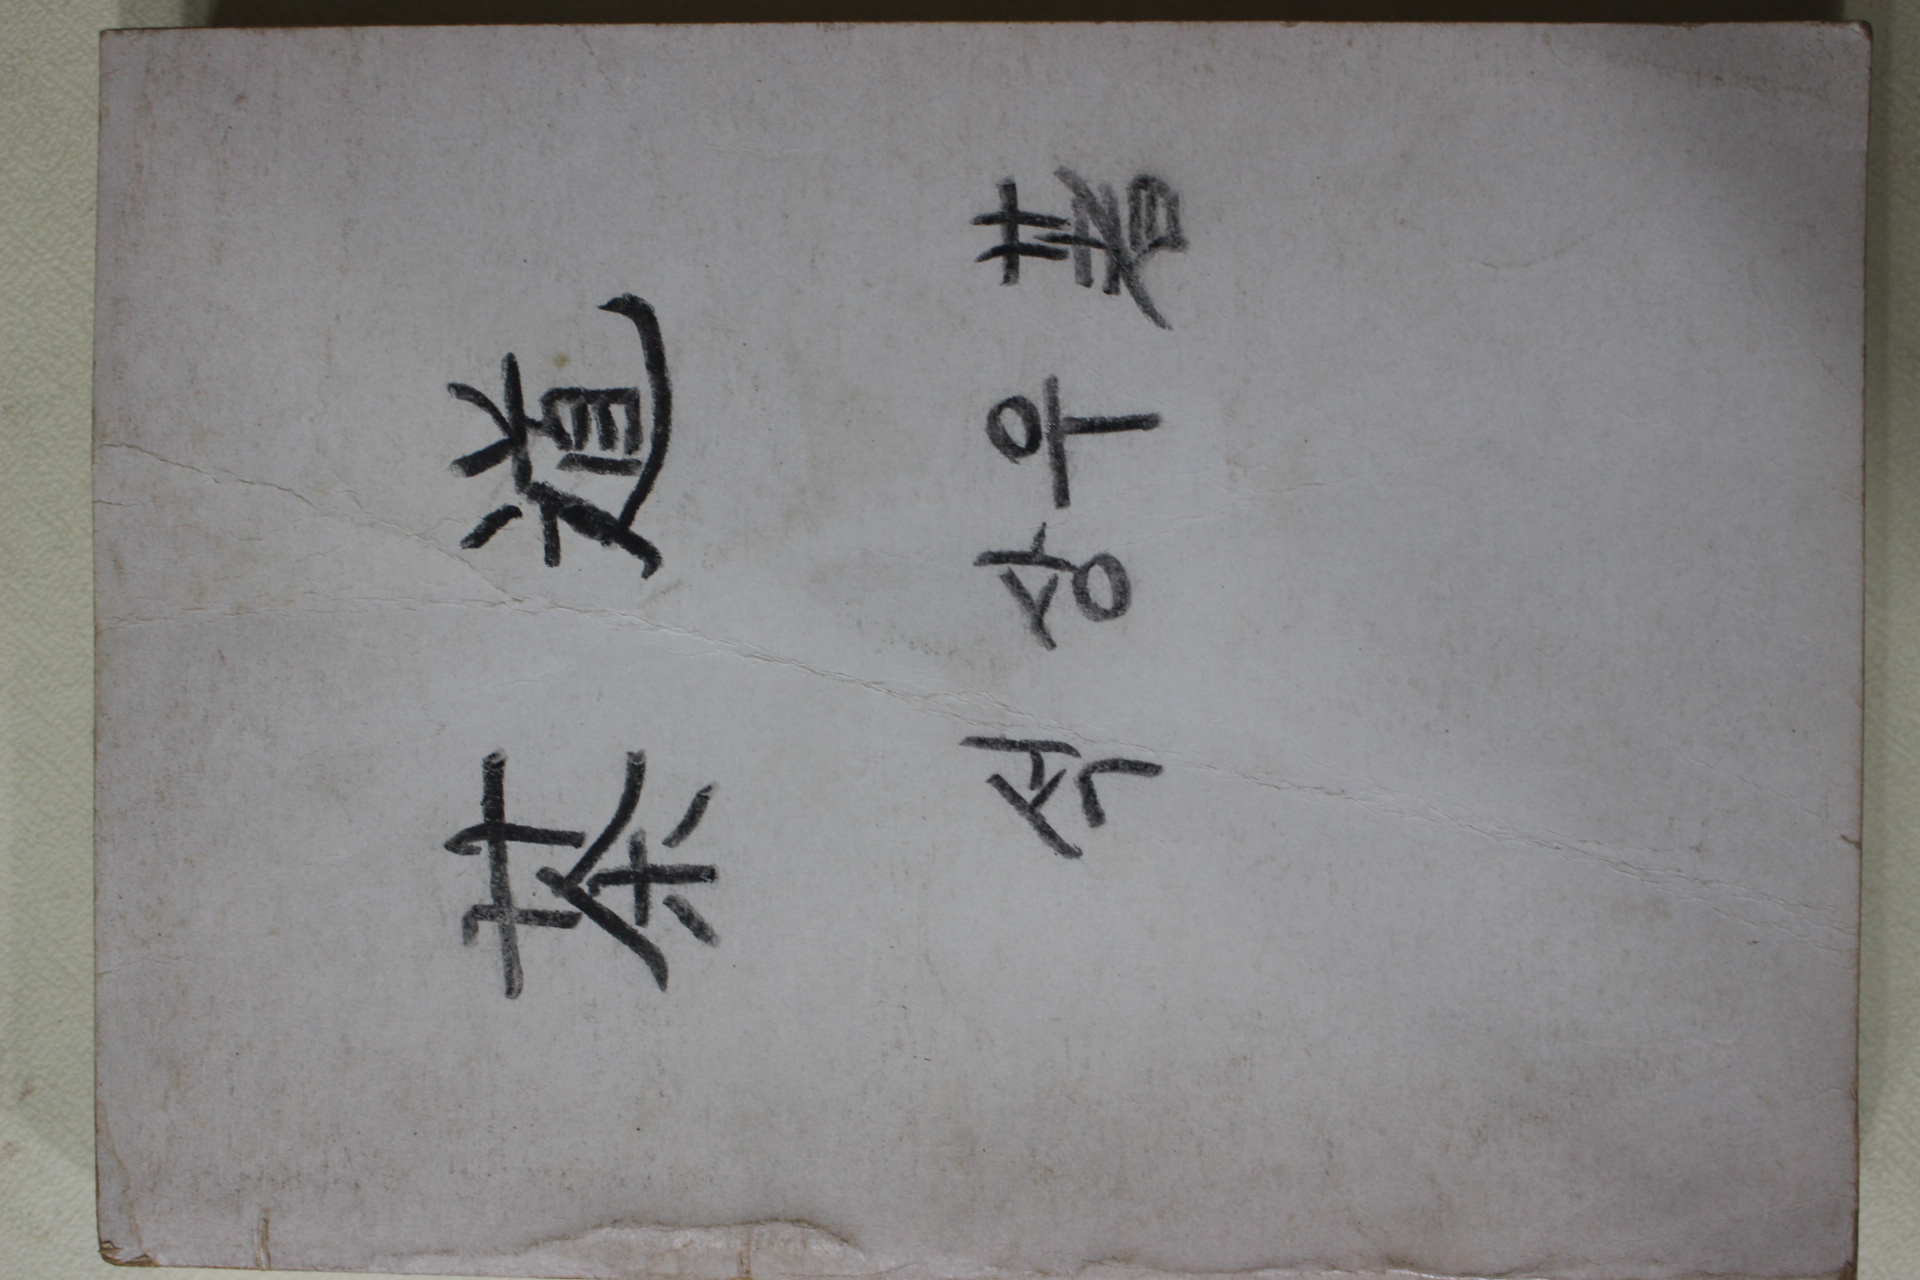 茶 道
석 상우 著